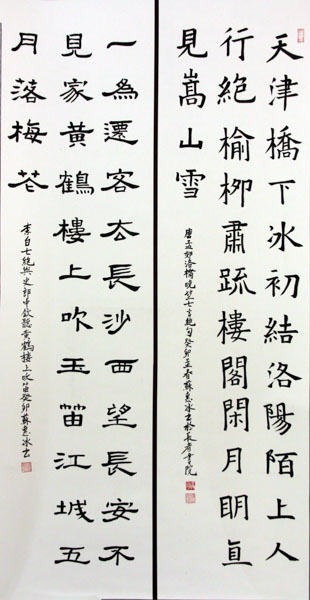 天津橋下冰初結洛陽陌上人
行絕榆柳肅疏樓閣閑月明直
見嵩山雪
唐孟郊洛橋晚望七言絕句癸卯孟春蘇惠冰書於長書院
一為遷客去長沙西望長安不
見家黃鶴樓上吹玉笛江城五
月落梅花
李白七絕與史郎中欽聽黃鶴樓上吹笛癸卯蘇惠冰書